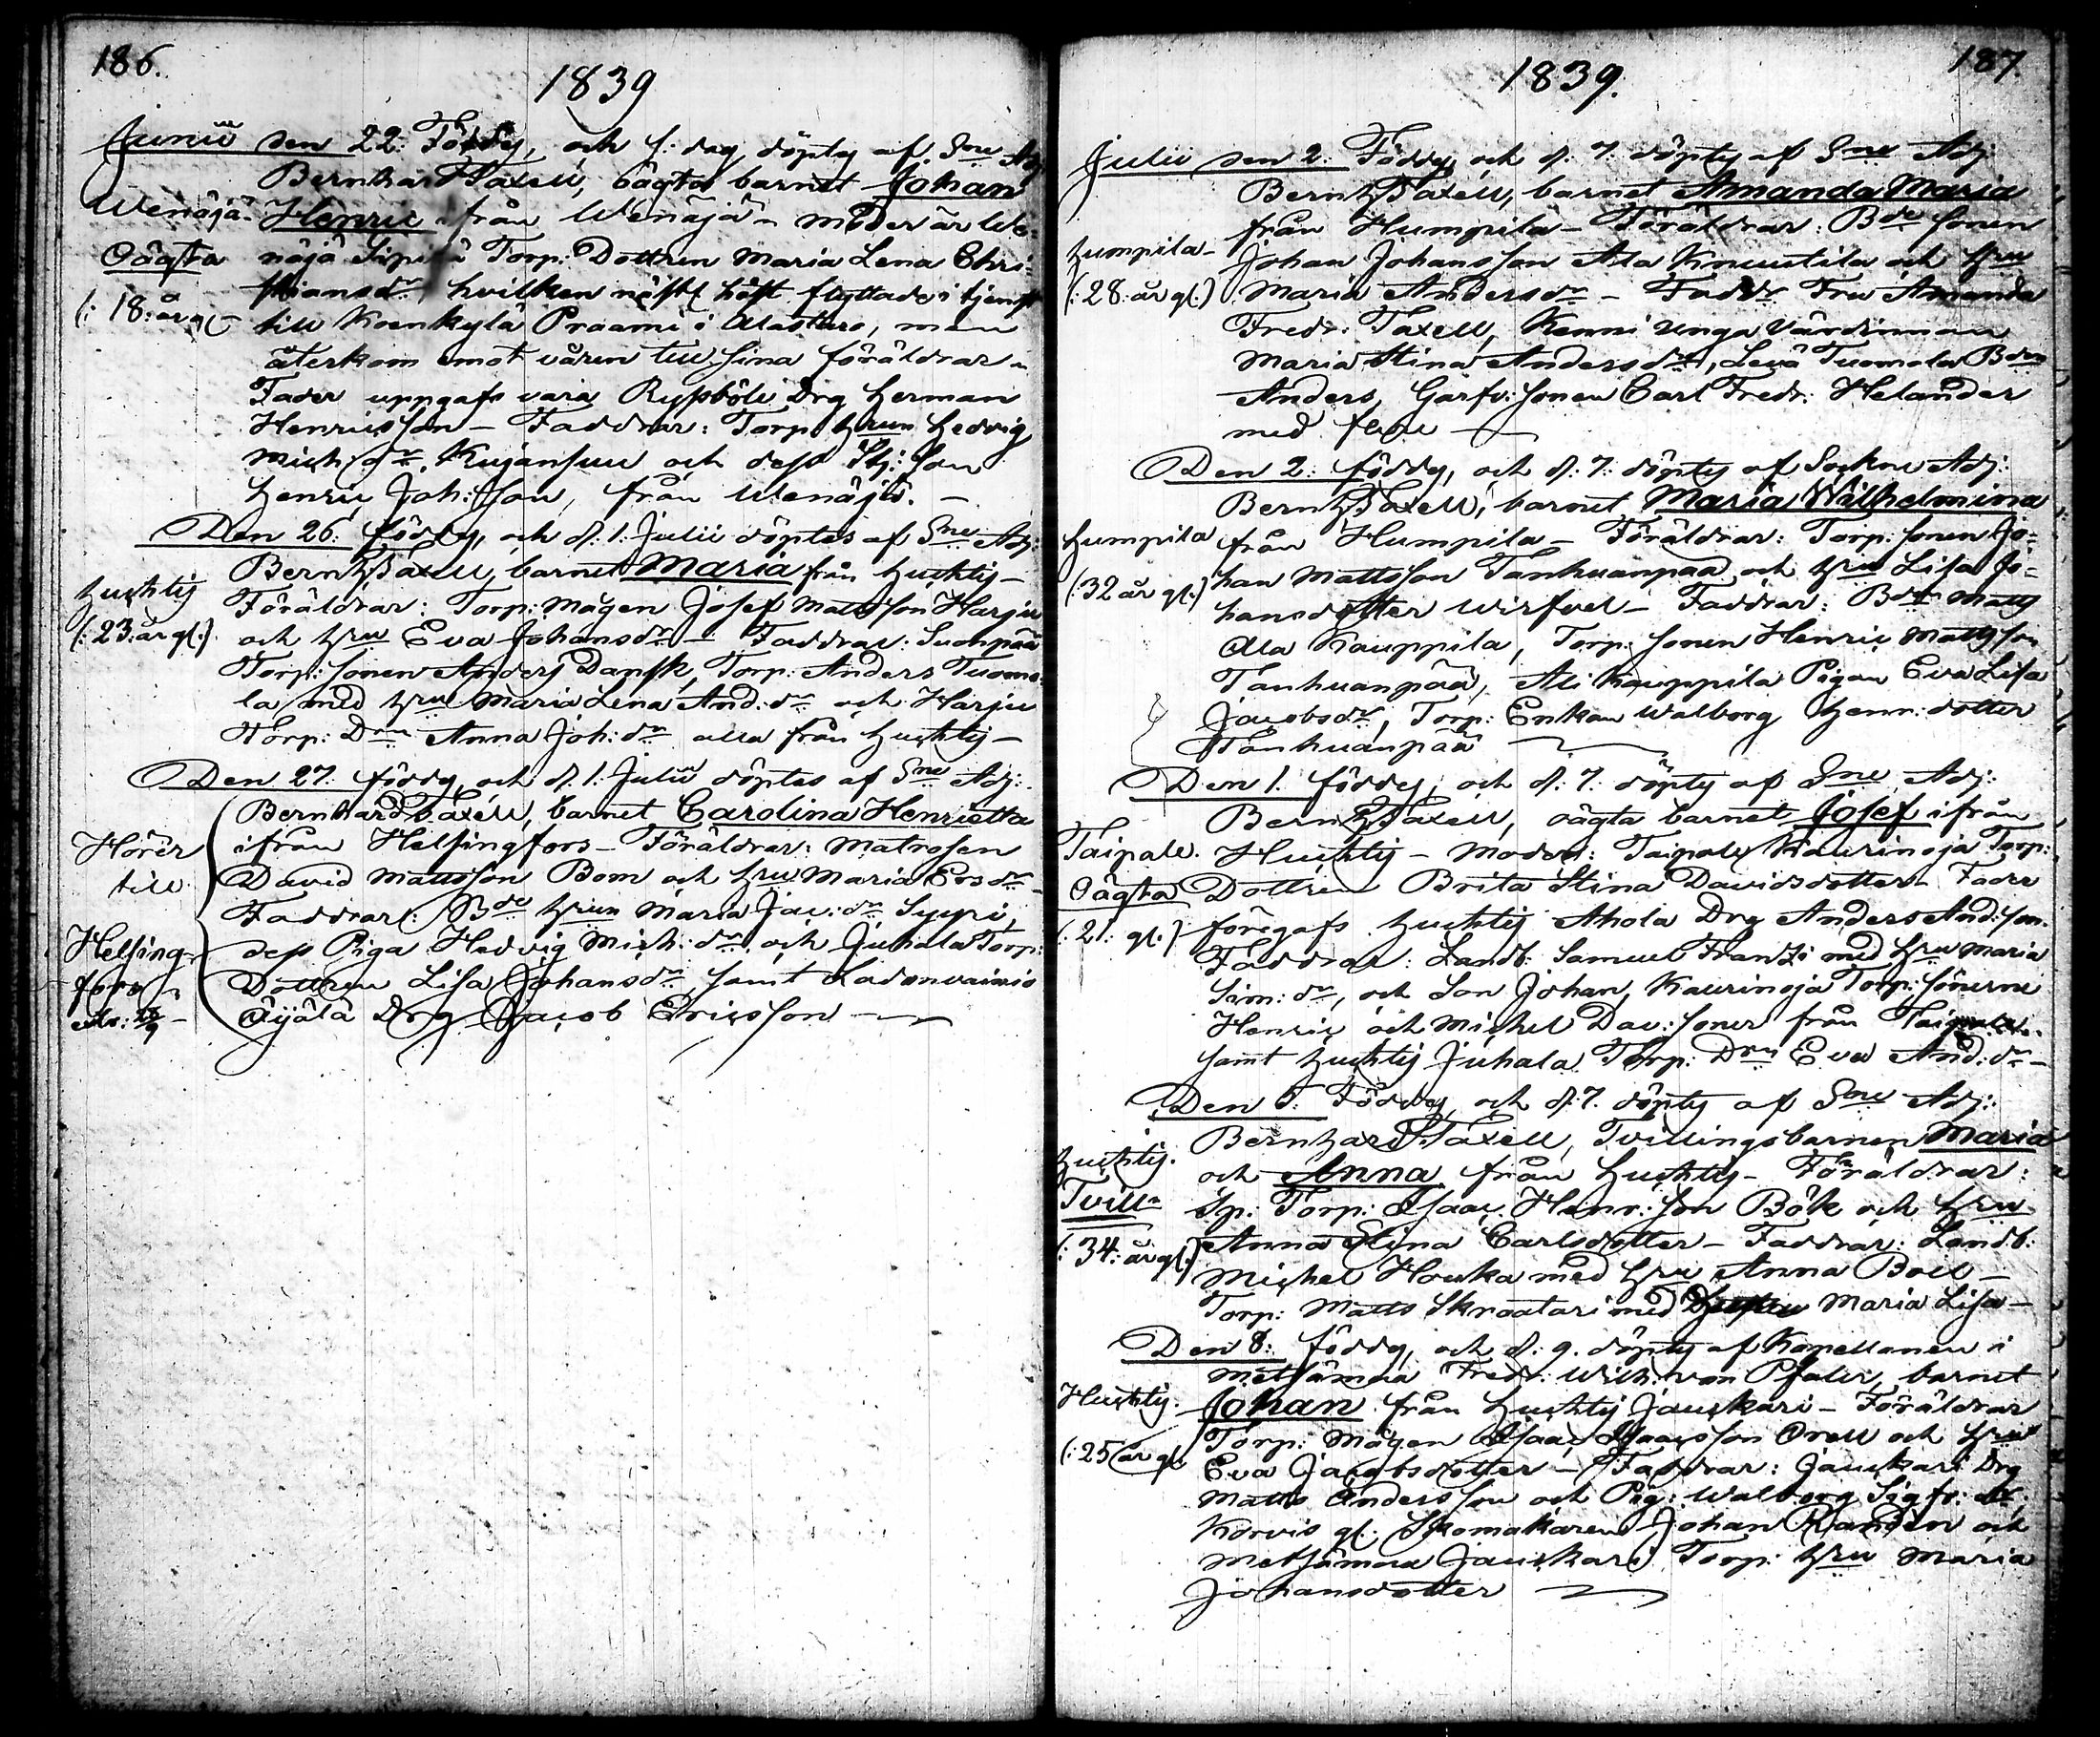 186.
1839
Junii den 22. Föddes, och s. dag döptes af Sne Adj
Bernhard Taxell, oägta barnet Johan
Wenäjä- Henric ifrån Wenäjä - moder är We-
Oägta näjä Sipilä Torp: Dottren Maria Lena Chri-
stiansdr, hvilken nästl höst flyttade i tjenst
(: 18: år gl - till Koenkylä Praami i Alastaro, men
återkom emot våren till sina föräldrar -
Fader uppgafs vara Rypsböle Drg Herman
Henricsson - Faddrar: Torp: Hrun Hedvig
Mich: dr Kujansuu och dess Stj: Son
Henric Joh: Son, från Wenäjä. -
Den 26. föddes, och d. 1. Julii döptes af Sne Adj:
Bernh Taxell, barnet Maria från Huchtis -
Huchtis Föräldrar: Torp: Mågen Josef Mattsson Harju
(: 23: år gl:) och Hru Eva Johansdr - Faddrar: Suonpää
Torp: Sonen Anders Dansk, Torp: Anders Tuomo-
la med Hru Maria Lena And: dr och Harju
Torp: Drn Anna Joh: dr alla från Huchtis -
Den 27. föddes, och d. 1. Julii döptes af Sne Adj:
Bernhard Taxell, barnet Carolina Henrietta
Hörer ifrån Helsingfors - Föräldrar: Matrosen
till David Mattsson Bom och Hru Maria Ersdr -
Faddrar: Bde Hrun Maria Jac: dr Syyri,
Helsing- dess Piga Hedvig Mich: dr, och Juhala Torp:
fors - Dottren Lisa Johansdr, samt Ladonvainio
Äijälä Drg Jacob Ericsson
187.
1839.
Julii den 2. Föddes, och d. 7. döptes af Sne Adj
Bernh Taxell, barnet Amanda Maria
från Humpila - Föräldrar: Bde Sonen
Humpila - Johan Johansson Ala Knuutila och Hru
(: 28: år gl:) Maria Andersdr - Faddr Fru Amanda
Fredr: Taxell, Kenni unga Värdinnan
Maria Stina Andersdr, Levä Tuomola Bden
Anders, Garfv: Sonen Carl Fredr: Helander
med flere
Den 2. föddes, och d. 7. döptes af Sockne Adj:
Bernh Taxell, barnet Maria Wilhelmina
Humpila från Humpila - Föräldrar: Torp: Sonen Jo-
(: 32 år gl:) han Mattsson Tanhuanpää och Hru Lisa Jo-
hansdotter Wirfvel - Faddrar: Bden Matts
Ala Kauppila, Torp: Sonen Henric Mattsson
Tanhuanpää, Ali Kauppila Pigan Eva Lisa
Jacobsdr, Torp: Enkan Walborg Henr: dotter
Tanhuanpää
Den 1. föddes, och d. 7. döptes af Sne Adj:
Bernh Taxell, oägta barnet Josef ifrån
Taipale. Huchtis - Moder: Taipale Kaurinoja Torp:
Oägta Dottren Brita Stina Davidsdotter - Fader
(: 21: gl:) föregafs Huchtis Ahola Drg Anders And: Son.
Faddrar: Landb: Samuel Frantzi med Hru Maria
Sim: dr, och Son Johan, Kaurinoja Torp: Sönerne
Henric och Michel Dav: Söner från Taipale.
samt Huchtis Juhala Torp: Drn Eva And: dr -
Den 5. Föddes, och d. 7. döptes af Sne Adj:
Bernhard Taxell, Tvillingsbarnen Maria
Huchtis. och Anna från Huchtis - Föräldrar:
Tvill- Sp: Torp: Isaac Henr: Son Böök och Hru
(: 34: år gl:) Anna Stina Carlsdotter - Faddrar: Landb:
Michel Houka med Hru Anna Boell -
Torp: Matts Skraatari med Maria Lisa -
Den 8. föddes, och d. 9. döptes af Kapellanen i
Metsämaa Fredr: Wilh: von Pfaler, barnet
Huchtis. Johan från Huchtis Jauckari - Föräldrar
(: 25 år gl Torp: Mågen Isaac Isaacsson Orell och Hru
Eva Jacobsdotter - Faddrar: Jauckari Drg
Matts Andersson och Pig: Walborg Sigfr: dr,
Korvis gl: Skomakaren Johan Randén och
Metsämaa Jauckari Torp: Hru Maria
Johansdotter